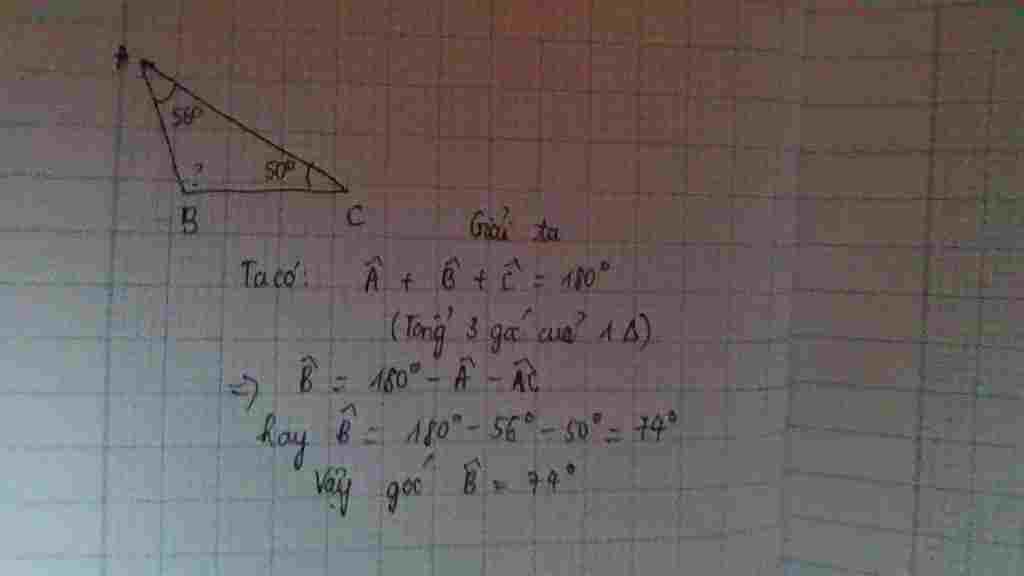 A
56°
50°
?
B
C
Giải ta
Ta có: Â + B̂ + Ĉ = 180°
(Tổng 3 góc của 1 Δ)
=> B̂ = 180° - Â - AĈ
hay B̂ = 180° - 56° - 50° = 74°
Vậy góc B̂ = 74°